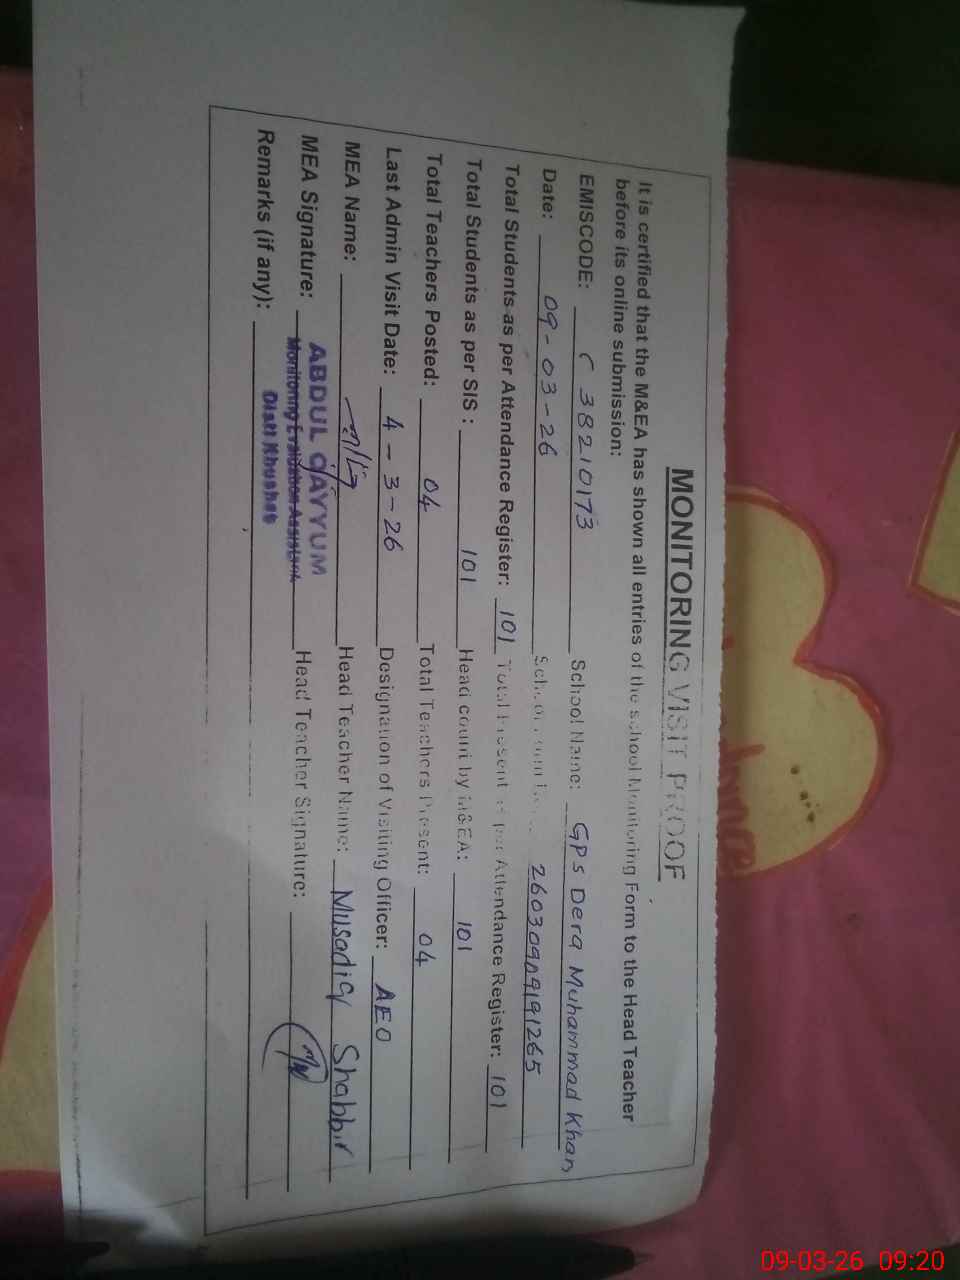 MONITORING VISIT PROOF
It is certified that the M&EA has shown all entries of the school Monitoring Form to the Head Teacher
before its online submission:
EMISCODE: ( 38210173 School Name: GPS Dera Muhammad Khan
Date: 09-03-26
Total Students as per Attendance Register: 101 Total Present as per Attendance Register: 101
Total Students as per SIS : 101 Head count by M&EA: 101
Total Teachers Posted: 04 Total Teachers Present: 04
Last Admin Visit Date: 4-3-26 Designation of Visiting Officer: AEO
MEA Name: Head Teacher Name: Musadiq Shabbir
MEA Signature: ABDUL QAYYUM Head Teacher Signature:
Monitoring Evaluation Assistant
Remarks (if any): Distt Khushab
09-03-26 09:20